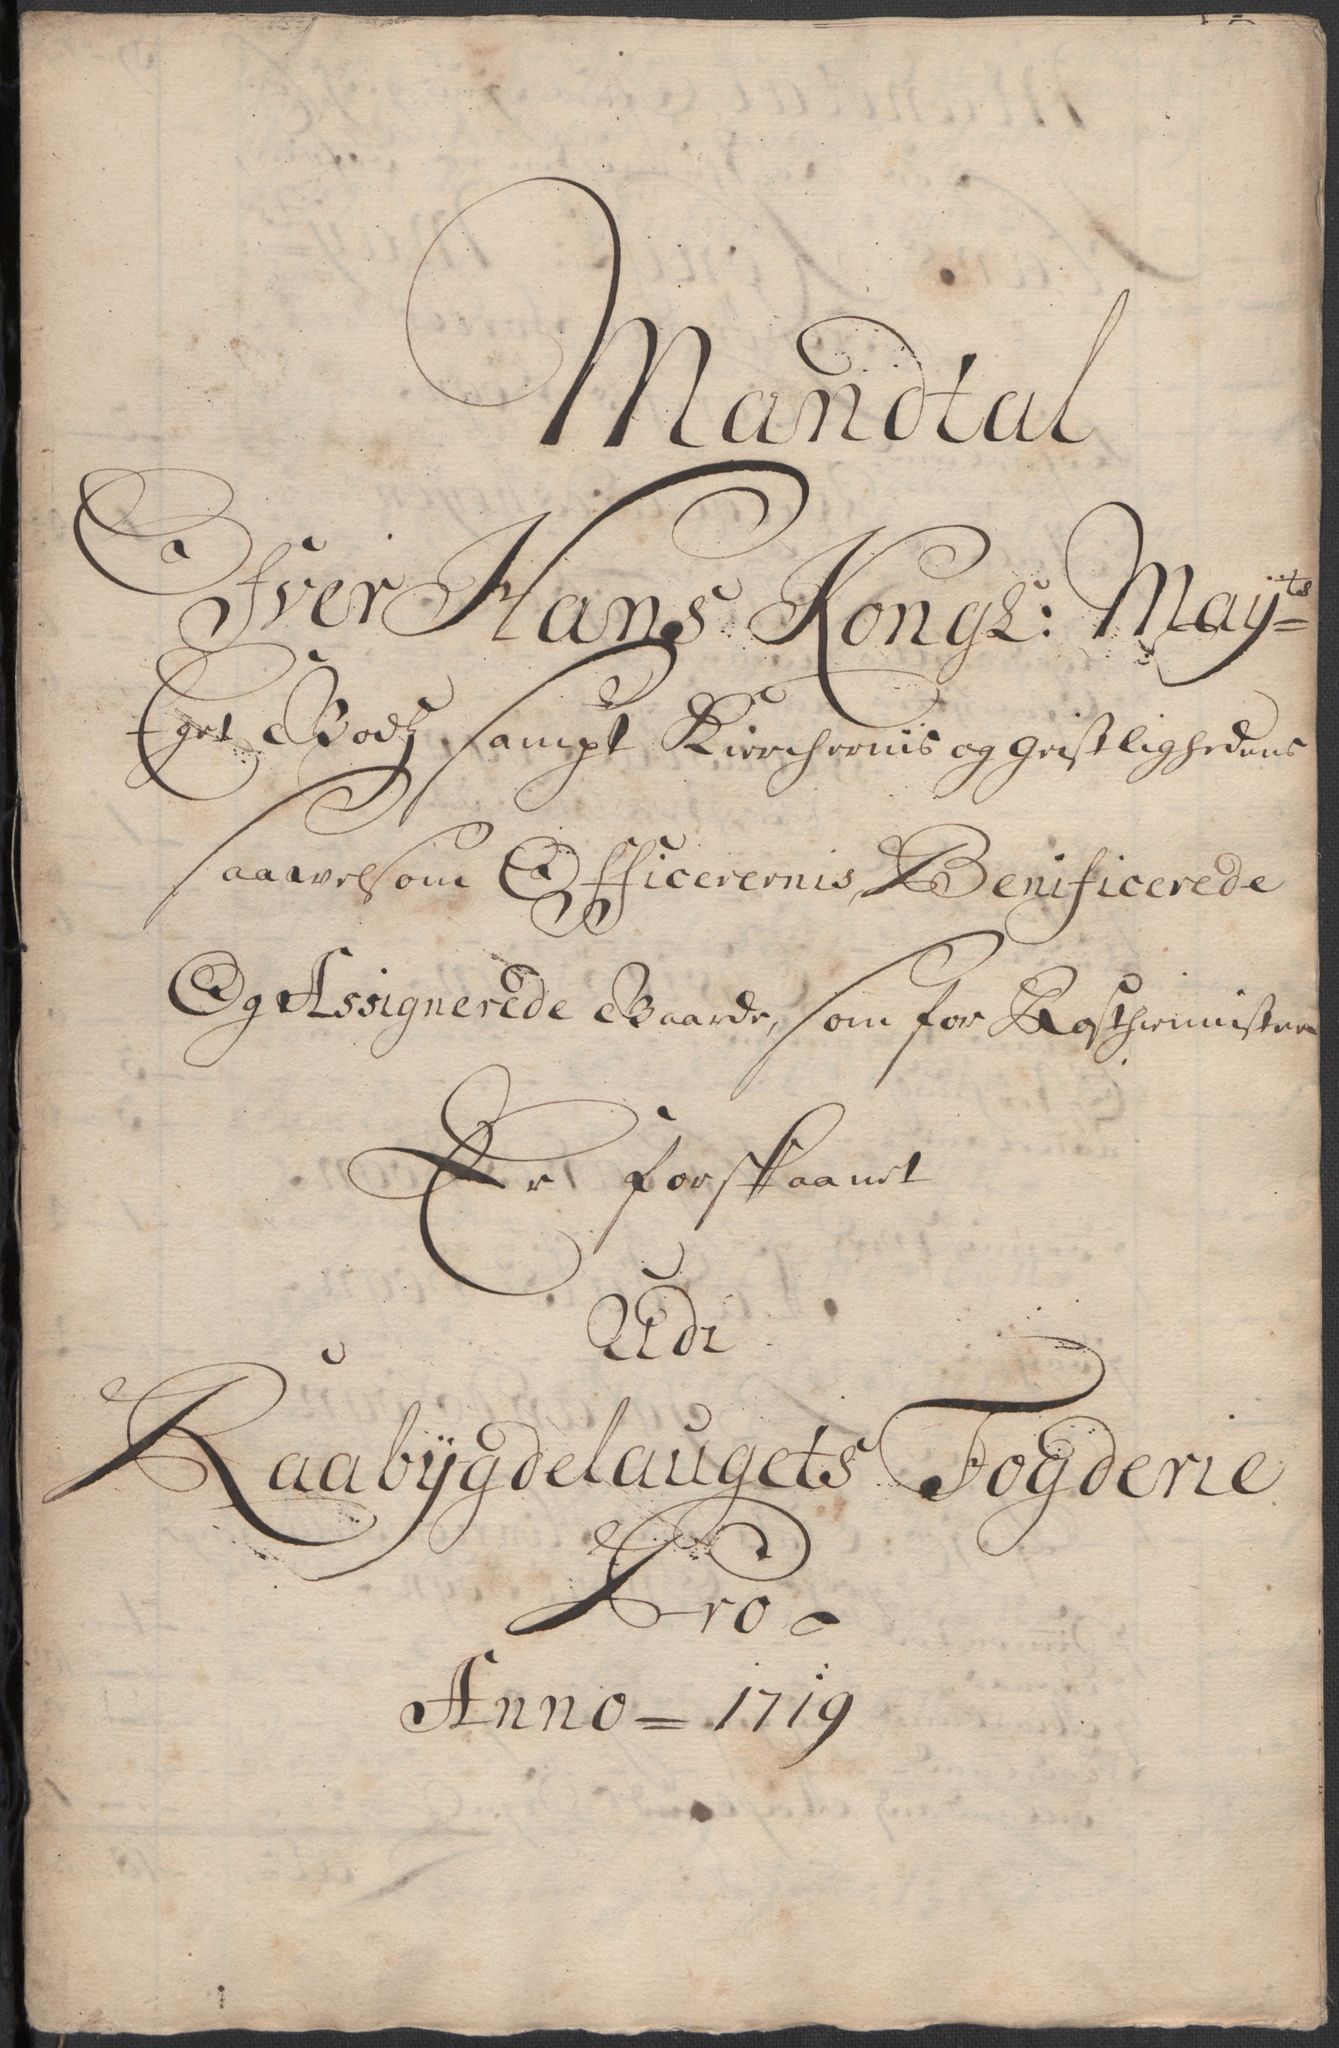 Mandtal
Ofver Hans Kongl: Mayts=
Eget Godtz, sampt Kirchernis og geistlighedens
saavelsom Officerernis, Benificerede
Og Assignerede Gaarde, som for Rosthienniste
Er forskaanet
Udi
Raabÿgdelaugets Fogderie
Pro
Anno = 1719